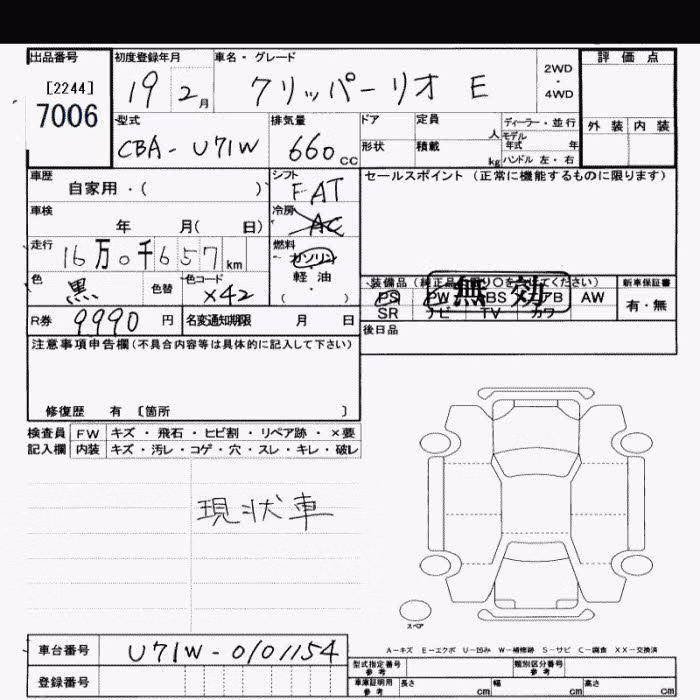 出品番号 初度登録年月 車名・グレード 評価点
[2244] 19 2月 クリッパーリオ E 2WD・4WD
7006
型式 排気量 ドア 定員 人 ディーラー・並行 外装 内装
CBA-U71W 660cc 形状 積載 kg モデル年式 年 ハンドル 左・右
車歴 シフト セールスポイント (正常に機能するものに限ります)
自家用・( ) FAT
車検 冷房
年 月( 日) AC
走行 燃料
16万0千657km ガソリン
色 色替 色コード 軽油
黒 X42 ( )
装備品(純正品 ください) 新車保証書
無効
PS PW ABS AB AW 有・無
SR ナビ TV カワ
R券 9990円 名変通知期限 月 日 後日品
注意事項申告欄(不具合内容等は具体的に記入して下さい)
修復歴 有 〔箇所 〕
検査員 FW キズ・飛石・ヒビ割・リペア跡・×要
記入欄 内装 キズ・汚レ・コゲ・穴・スレ・キレ・破レ
現状車
スペア
A-キズ E-エクボ U-凹み W-補修跡 S-サビ C-腐食 XX-交換済
車台番号 U71W-0101154
型式指定番号 参考 類別区分番号 参考
登録番号 車庫証明用 参考 長さ cm 幅 cm 高さ cm